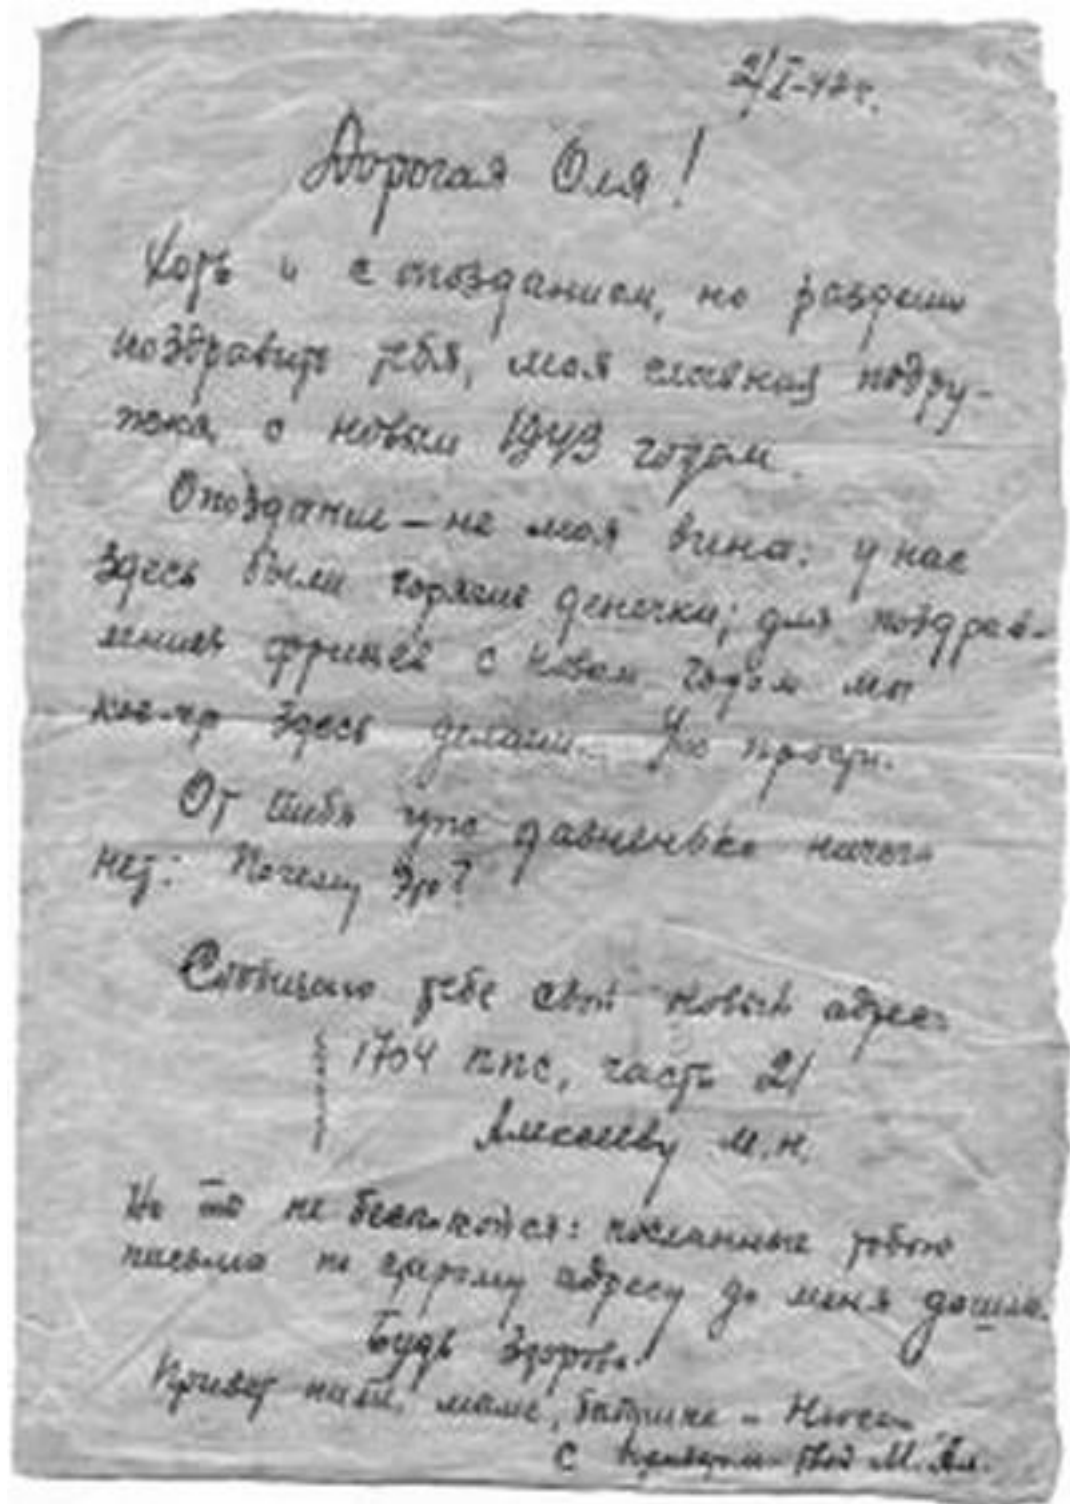 2/I-43 г.
Дорогая Оля!
Хоть и с опозданием, но разреши
поздравить тебя, моя славная подру-
жка, с новым 1943 годом.
Опоздание – не моя вина: у нас
здесь были горячие денечки; для поздрав-
ления фрицев с Новым годом мы
кое-что здесь делали. Уж прости.
От тебя что давненько ничего
нет. Почему это?
Сообщаю тебе свой новый адрес:
1704 ппс, часть 21
Алексееву М.Н.
Но ты не беспокойся: посланные тобою
письма по старому адресу до меня дошли.
Будь здорова.
Привет маме,
С приветом твой М. Ал.